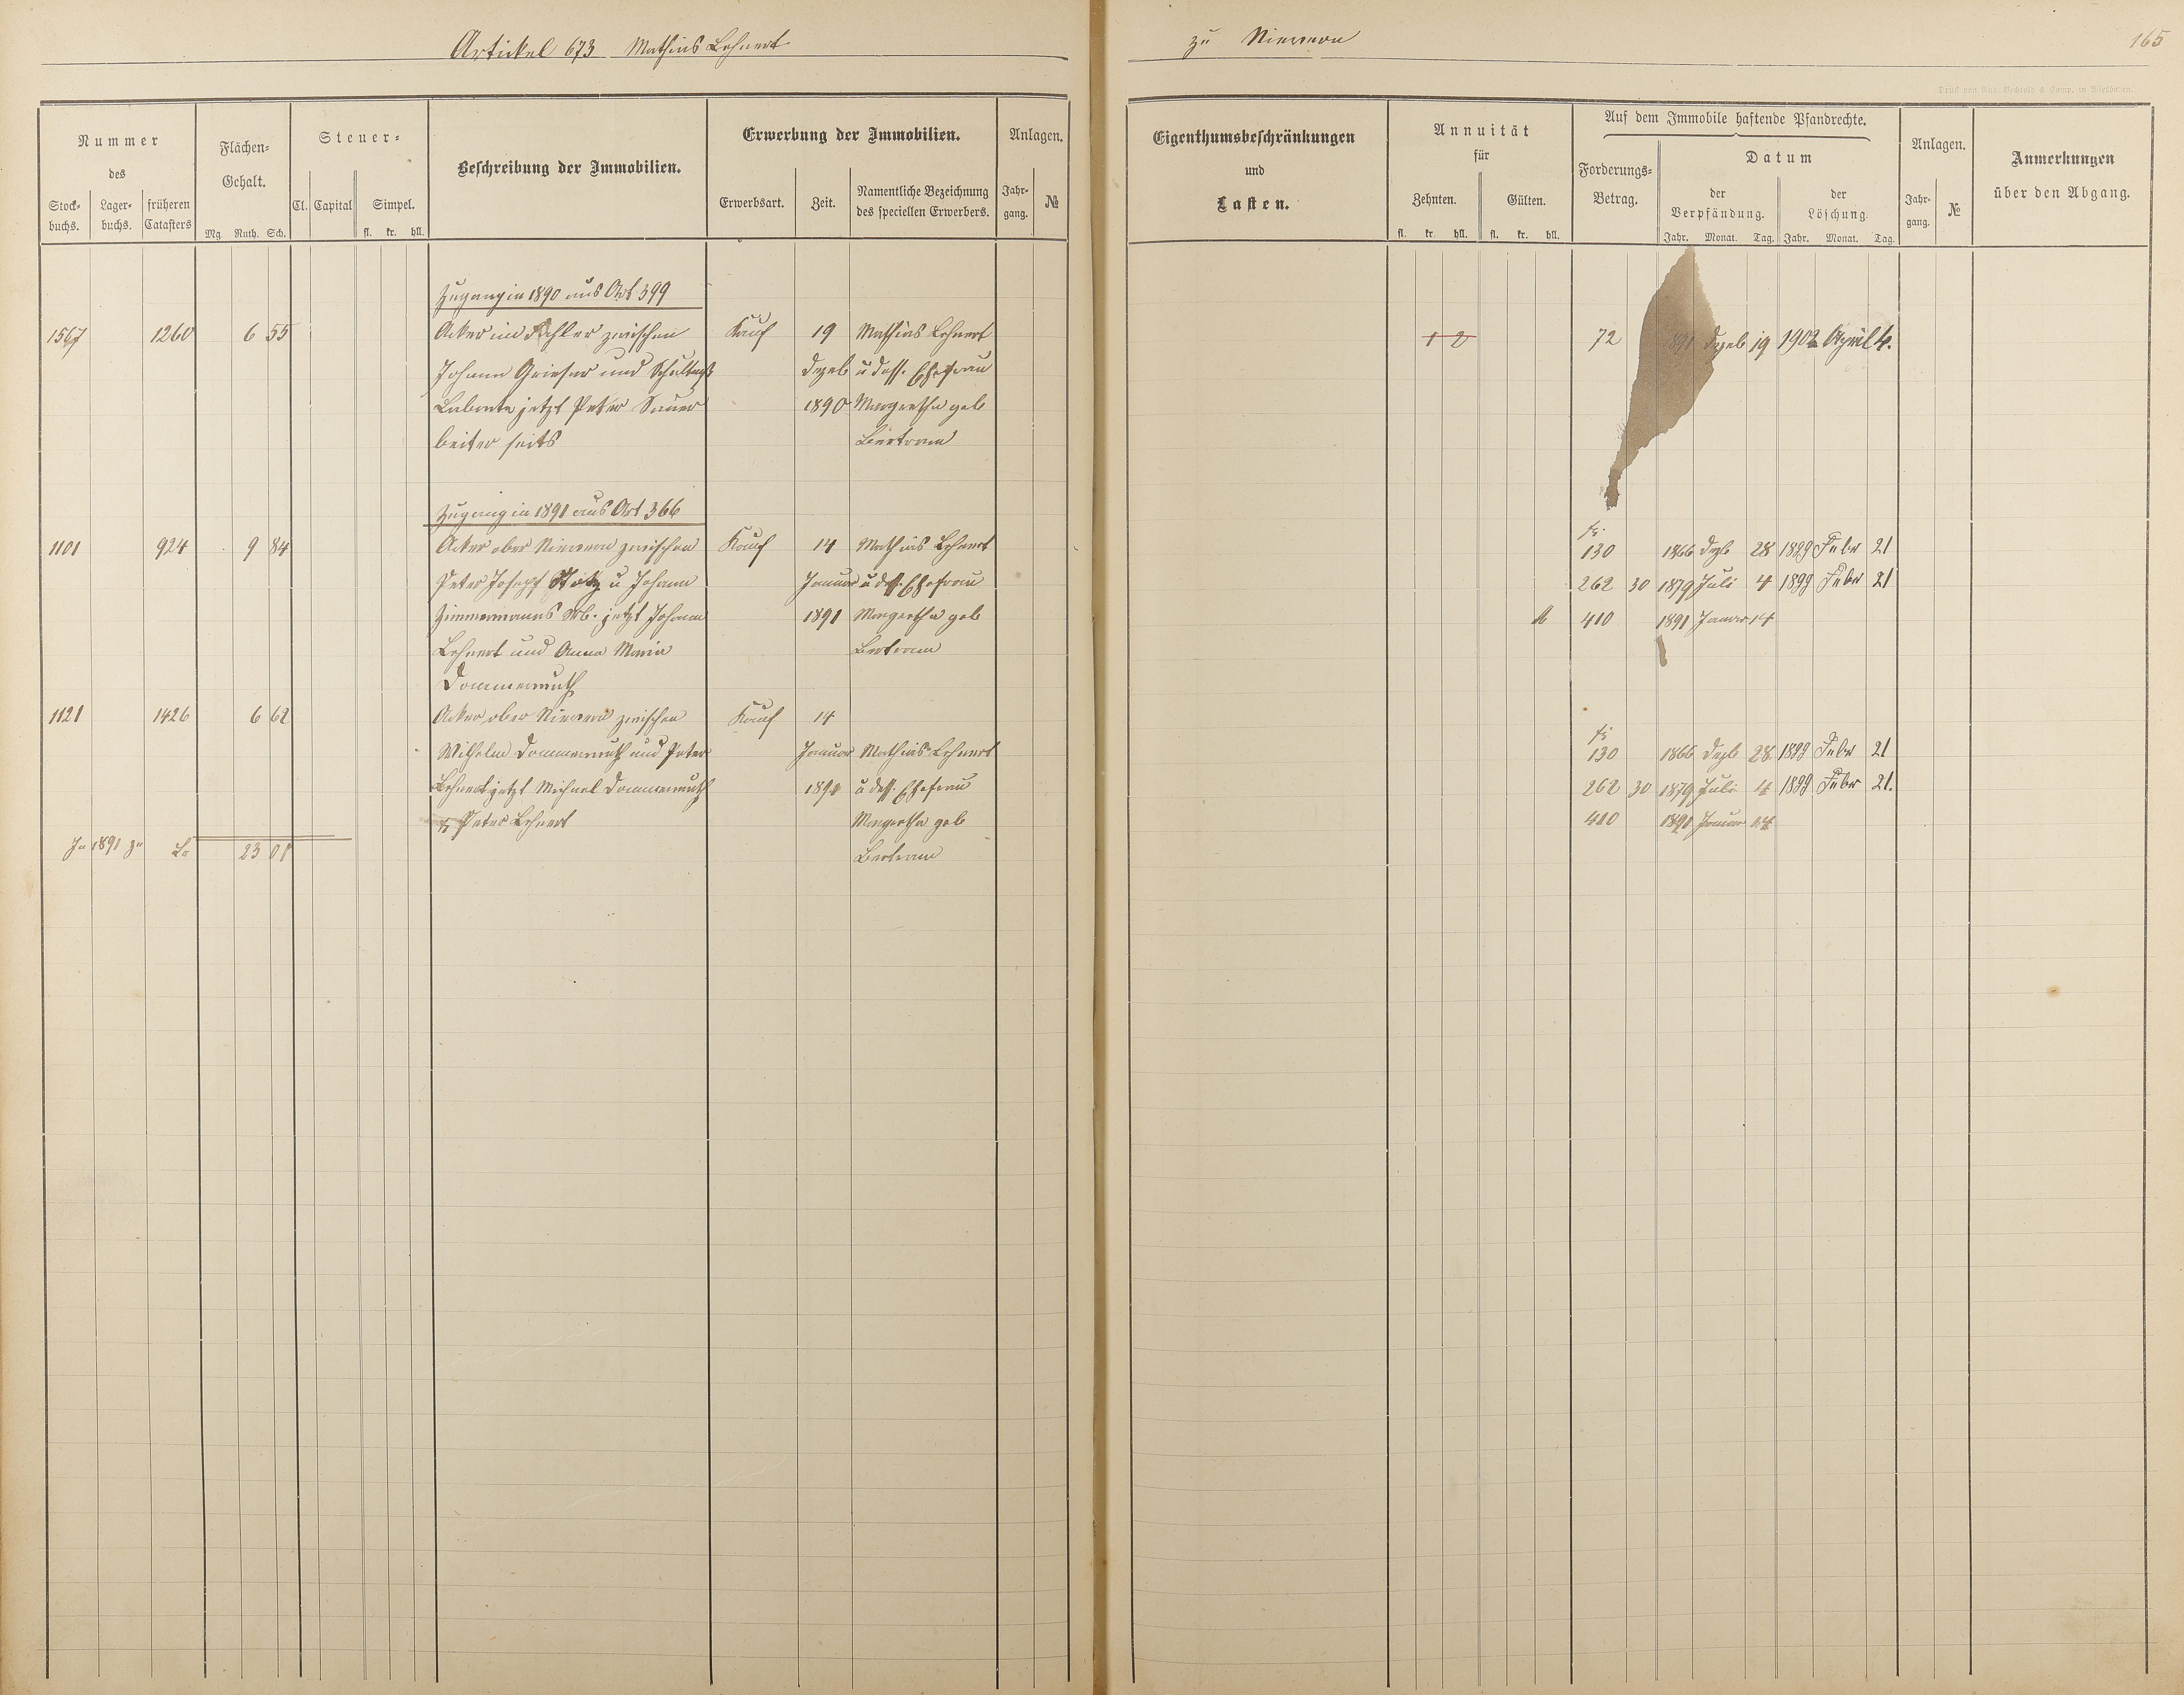 Artickel 673 Mathias Lehnert
zu Nievern
165
Druck von Rud. Bechtold & Comp. in Wiesbaden.
Nummer
des
Stock-
buchs.
Lager-
buchs.
früheren
Catasters
Flächen-
Gehalt.
Mg. Ruth. Sch.
Steuer-
Cl. Capital Simpel.
fl. kr. hll.
Beschreibung der Immobilien.
Erwerbung der Immobilien.
Erwerbsart. Zeit.
Namentliche Bezeichnung
des speciellen Erwerbers.
Anlagen.
Jahr-
gang.
№
Eigenthumsbeschränkungen
und
Lasten.
Annuität
für
Zehnten. Gülten.
fl. kr. hll. fl. kr. hll.
Auf dem Immobile haftende Pfandrechte.
Forderungs-
Betrag.
Datum
der
Verpfändung.
der
Löschung.
Jahr. Monat. Tag. Jahr. Monat. Tag.
Anlagen.
Jahr-
gang.
№
Anmerkungen
über den Abgang.
Zugang in 1890 aus Art 399
1567 1260 6 55 Acker im zwischen Kauf 19 Mathias Lehnert 1 2 72 1891 Dezeb 19 1902 April 4.
Johann Grieser und Dezeb u dess. Ehefrau
jetzt Peter Sauer 1890 Margretha geb
beiter seits Bertram
Zugang in 1891 aus Art 366
fl
1101 924 9 84 Acker ober Nievern zwischen Kauf 14 Mathias Lehnert 130 1866 Dezb 28 1899 Febr 21
Peter Josepf u Johann Januar u dess. Ehefrau 262 30 1879 Juli 4 1899 Febr 21
Zimmermanns Wb. jetzt Johann 1891 Margretha geb M 410 1891 Januar 14
Lehnert und Anna Maria Bertram
Dommermuth
1121 1426 6 62 Acker ober Nievern zwischen Kauf 14
fl
Wilhelm Dommermuth und Peter Januar Mathias Lehnert 130 1866 Dezb 28 1899 Febr 21
Lehnert jetzt Michael Dommermuth 1891 u dess. Ehefrau 262 30 1879 Juli 4 1899 Febr 21.
Peter Lehnert Margretha geb 410 1891 Januar 14
In 1891 zu La 23 01 Bertram